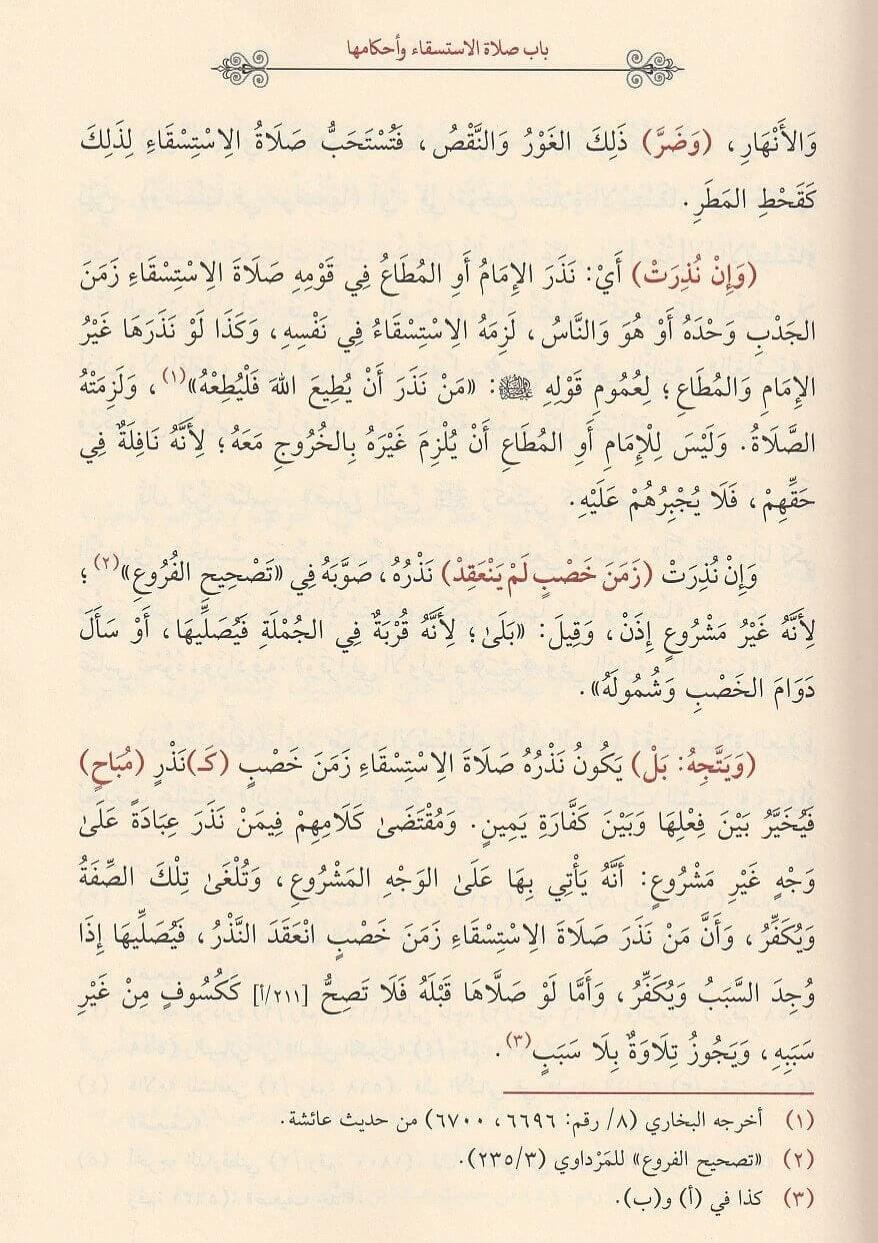 باب صلاة الاستسقاء وأحكامها
وَالأَنْهَارِ، (وَضَرَّ) ذَلِكَ الغَوْرُ وَالنَّقْصُ، فَتُسْتَحَبُّ صَلَاةُ الِاسْتِسْقَاءِ لِذَلِكَ
كَقَحْطِ المَطَرِ.
(وَإِنْ نُذِرَتْ) أَيْ: نَذَرَ الإِمَامُ أَوِ المُطَاعُ فِي قَوْمِهِ صَلَاةَ الِاسْتِسْقَاءِ زَمَنَ
الجَدْبِ وَحْدَهُ أَوْ هُوَ وَالنَّاسُ، لَزِمَهُ الِاسْتِسْقَاءُ فِي نَفْسِهِ، وَكَذَا لَوْ نَذَرَهَا غَيْرُ
الإِمَامِ وَالمُطَاعِ؛ لِعُمُومِ قَوْلِهِ ﷺ: «مَنْ نَذَرَ أَنْ يُطِيعَ اللهَ فَلْيُطِعْهُ»(١)، وَلَزِمَتْهُ
الصَّلَاةُ. وَلَيْسَ لِلْإِمَامِ أَوِ المُطَاعِ أَنْ يُلْزِمَ غَيْرَهُ بِالخُرُوجِ مَعَهُ؛ لِأَنَّهُ نَافِلَةٌ فِي
حَقِّهِمْ، فَلَا يُجْبِرُهُمْ عَلَيْهِ.
وَإِنْ نُذِرَتْ (زَمَنَ خَصْبٍ لَمْ يَنْعَقِدْ) نَذْرُهُ، صَوَّبَهُ فِي «تَصْحِيحِ الفُرُوعِ»(٢)؛
لِأَنَّهُ غَيْرُ مَشْرُوعٍ إِذَنْ، وَقِيلَ: «بَلَىٰ؛ لِأَنَّهُ قُرْبَةٌ فِي الجُمْلَةِ فَيُصَلِّيهَا، أَوْ سَأَلَ
دَوَامَ الخَصْبِ وَشُمُولَهُ».
(وَيَتَّجِهُ: بَلْ) يَكُونُ نَذْرُهُ صَلَاةَ الِاسْتِسْقَاءِ زَمَنَ خَصْبٍ (كَـ)نَذْرِ (مُبَاحٍ)
فَيُخَيَّرُ بَيْنَ فِعْلِهَا وَبَيْنَ كَفَّارَةِ يَمِينٍ. وَمُقْتَضَىٰ كَلَامِهِمْ فِيمَنْ نَذَرَ عِبَادَةً عَلَىٰ
وَجْهٍ غَيْرِ مَشْرُوعٍ: أَنَّهُ يَأْتِي بِهَا عَلَىٰ الوَجْهِ المَشْرُوعِ، وَتُلْغَىٰ تِلْكَ الصِّفَةُ
وَيُكَفِّرُ، وَأَنَّ مَنْ نَذَرَ صَلَاةَ الِاسْتِسْقَاءِ زَمَنَ خَصْبٍ انْعَقَدَ النَّذْرُ، فَيُصَلِّيهَا إِذَا
وُجِدَ السَّبَبُ وَيُكَفِّرُ، وَأَمَّا لَوْ صَلَّاهَا قَبْلَهُ فَلَا تَصِحُّ [٢١١/أ] كَكُسُوفٍ مِنْ غَيْرِ
سَبَبِهِ، وَيَجُوزُ تِلَاوَةٌ بِلَا سَبَبٍ(٣).
(١) أخرجه البخاري (٨/ رقم: ٦٦٩٦، ٦٧٠٠) من حديث عائشة.
(٢) «تصحيح الفروع» للمَرْداوي (٢٣٥/٣).
(٣) كذا في (أ) و(ب).